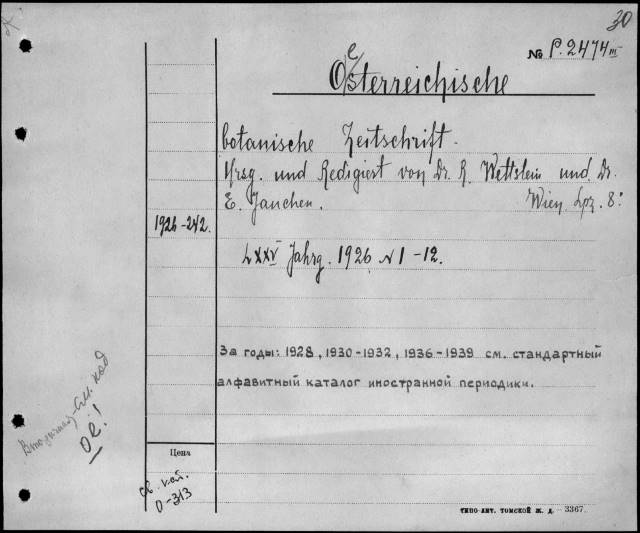 30
№ P. 2474 III
Oesterreichische
botanische Zeitschrift.
Hrsg. und Redigiert von Dr. R. Wettstein und Dr.
E. Janchen. Wien Lpz. 8:
1926-242.
LXXV Jahrg. 1926 N 1-12.
За годы: 1928, 1930-1932, 1936-1939 см. стандартный
алфавитный каталог иностранной периодики.
под
Oe!
Цена
св. кат.
О-313
ТИПО-ЛИТ. ТОМСКОЙ Ж. Д. — 3367.